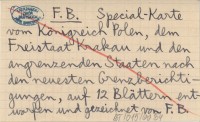 F.B. Special-Karte
vom Königreich Polen, dem
Freistaat Krakau und den
angrenzenden Staaten nach
den neuesten Grenzberichti-
gungen, auf 12 Blättern ent-
worfen und gezeichnet von F.B.